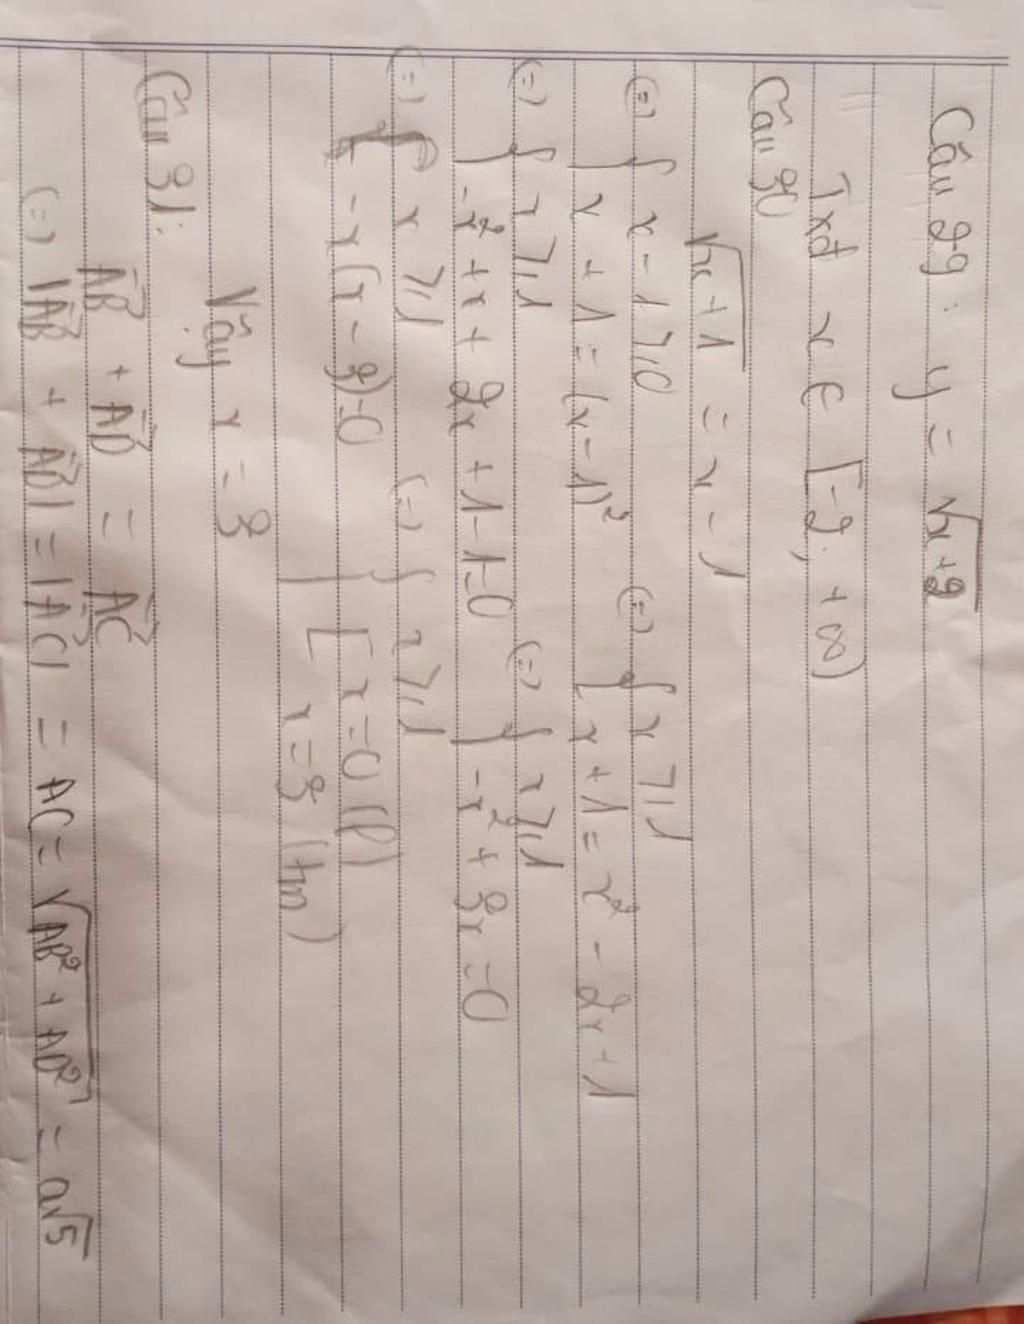 Câu 29: y = √x+2
Txđ x ∈ [-2; +∞)
Câu 30
√x+1 = x - 1
(=) { x - 1 ⩾ 0 (=) { x ⩾ 1
x + 1 = (x - 1)² x + 1 = x² - 2x + 1
(=) { x ⩾ 1 (=) { x ⩾ 1
-x² + x + 2x + 1 - 1 = 0 -x² + 3x = 0
(=) { x ⩾ 1 (=) { x ⩾ 1
-x(x - 3) = 0 [ x = 0 (l)
x = 3 (tm)
Vậy x = 3
Câu 31:
AB→ + AD→ = AC→
(=) |AB→ + AD→| = |AC→| = AC = √AB² + AD² = a√5